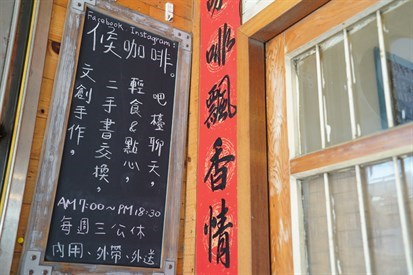 Facebook、Instagram：
候咖啡。
吧檯聊天，
輕食&點心，
二手書交換，
文創手作。
AM7:00～PM18:30
每週三公休
內用、外帶、外送
咖啡飄香情